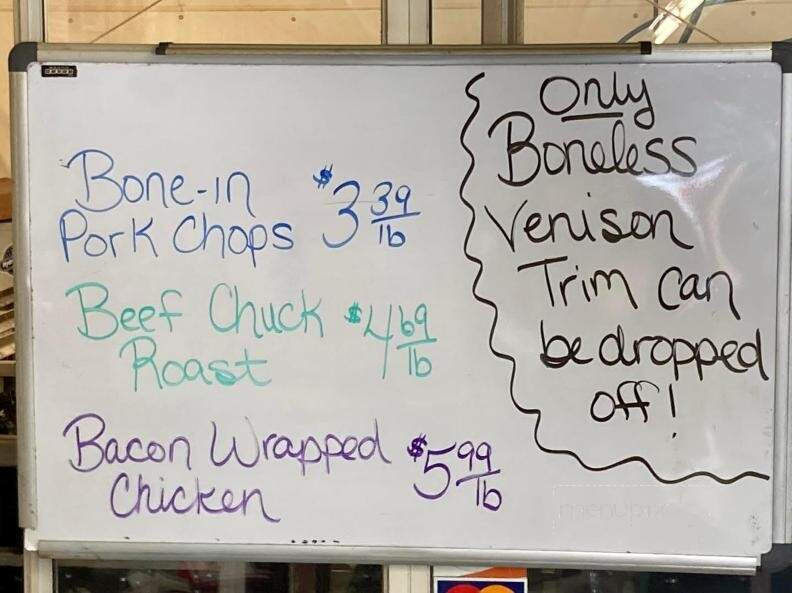 Bone-in $3 39/lb
Pork Chops
Beef Chuck $4 69/lb
Roast
Bacon Wrapped $5 99/lb
Chicken
Only
Boneless
Venison
Trim can
be dropped
off!